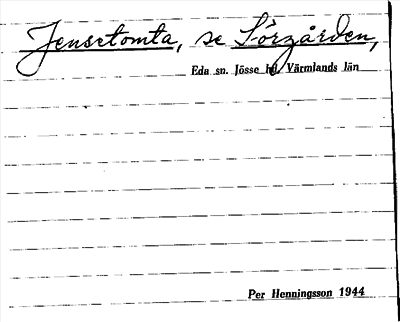 Jensetomta, se Sörgården,
Eda sn. Jösse hd. Värmlands län
Per Henningsson 1944